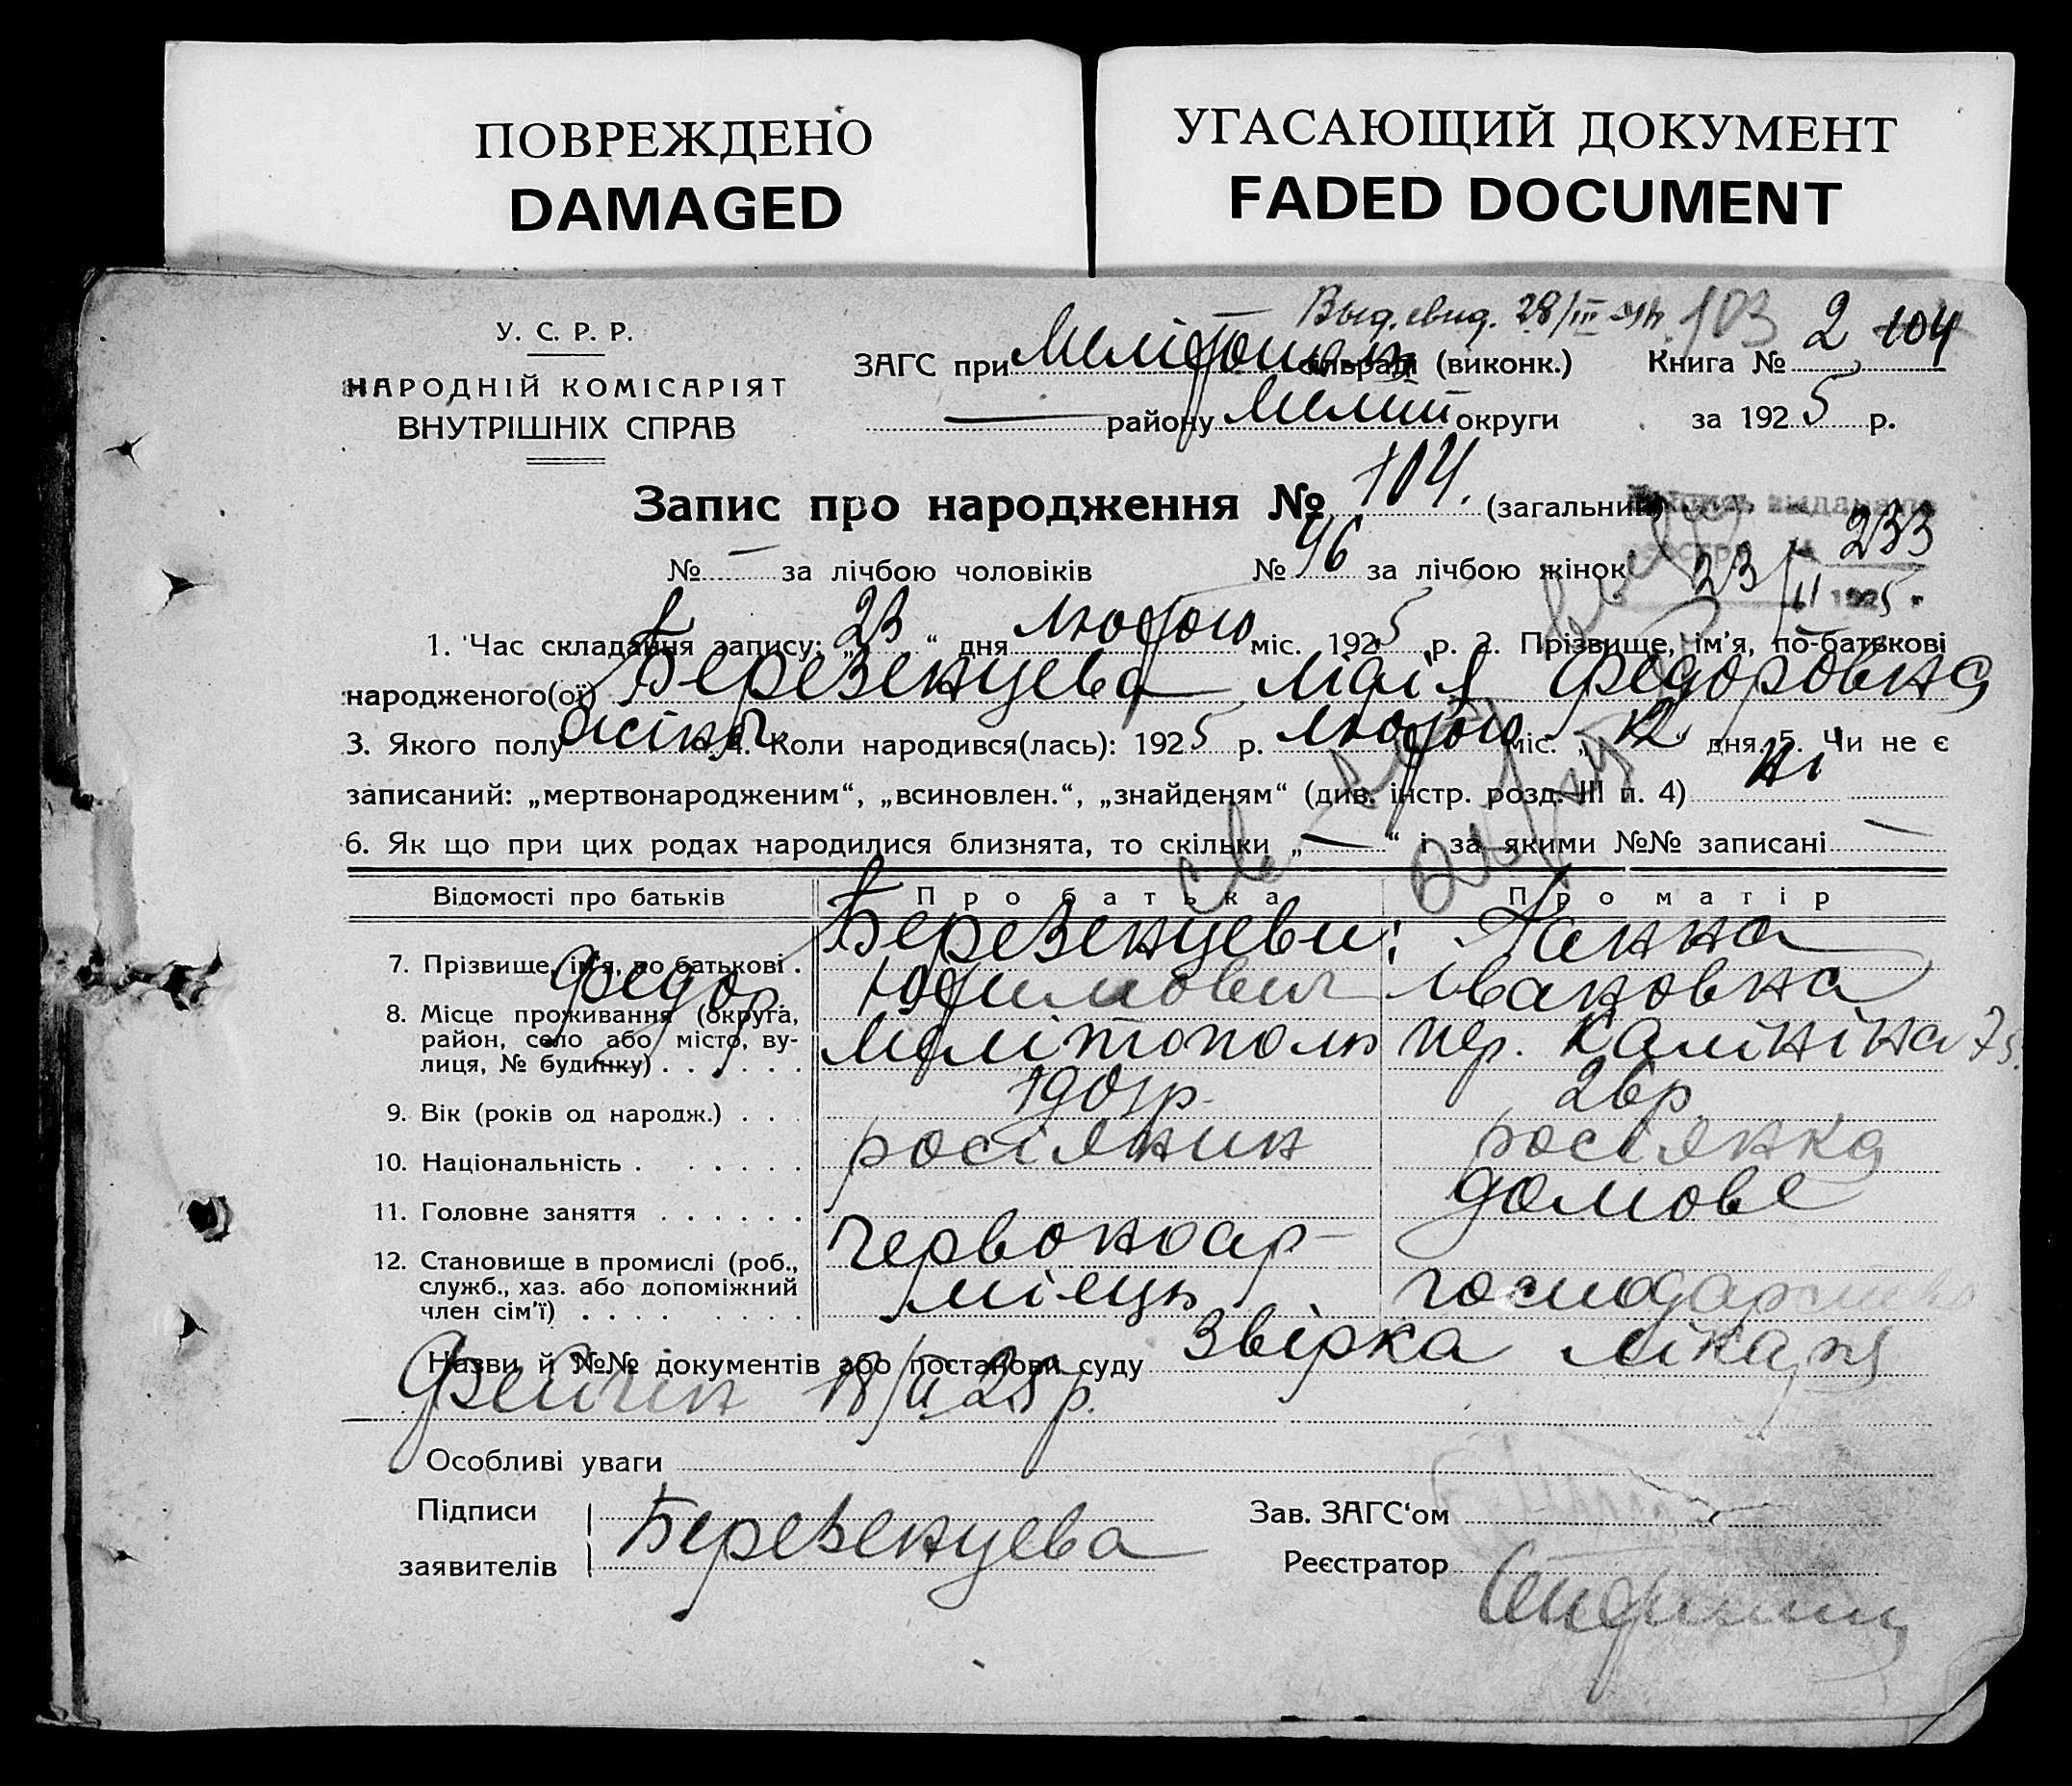 ПОВРЕЖДЕНО
DAMAGED
УГАСАЮЩИЙ ДОКУМЕНТ
FADED DOCUMENT
Выд. свид. 28/III
103
У. С. Р. Р.
НАРОДНІЙ КОМІСАРІЯТ
ВНУТРІШНІХ СПРАВ
ЗАГС при (виконк.) Книга № 2 104
району Меліт округи за 1925 р.
Запис про народження № 104. (загальний)
№ – за лічбою чоловіків № 46 за лічбою жінок
233
23/II 1925
1. Час складання запису: „23“ дня лютого міс. 1925 р. 2. Прізвище, ім'я, по-батькові
народженого(ої) Березенцева Лідія Федоровна
3. Якого полу жіноч. 4. Коли народився(лась): 1925 р. лютого міс. „12 дня. 5. Чи не є
записаний: „мертвонародженим“, „всиновлен.“, „знайденям“ (див. інстр. розд. III п. 4) ні
6. Як що при цих родах народилися близнята, то скільки „—“ і за якими №№ записані —
Відомості про батьків Про батька Про матір
7. Прізвище, ім'я, по батькові . Березенцеви: Ганна
Федор Юфимович Івановна
8. Місце проживання (округа,
район, село або місто, ву-
лиця, № будинку) . . . . . . Мелітополь пер. Калініна 75.
9. Вік (років од народж.) . . . 1901р. 26р.
10. Національність . . . . . . росіянин росіянка
11. Головне заняття . . . . . . домове
12. Становище в промислі (роб.,
служб., хаз. або допоміжний
член сім'ї) . . . . . . . . . червоноар-
мієць господарство
Назви й №№ документів або постанови суду Звірка лікаря
Фейгін 18/II 25 р.
Особливі уваги
Підписи
заявителів Березенцева
Зав. ЗАГС'ом
Реєстратор